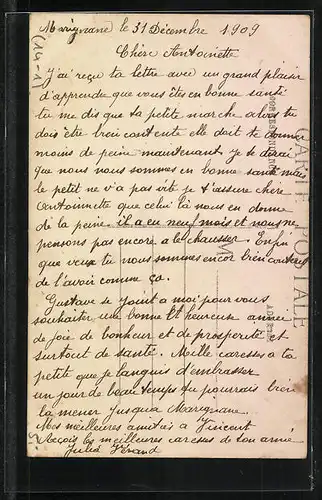 Marignane le 31 Décembre 1909
(14-1)
Chère Antoinette
J'ai reçu ta lettre avec un grand plaisir
d'apprendre que vous êtes en bonne santé
tu me dis que ta petite marche alors tu
dois être bien contente elle doit te donner
moins de peine maintenant je te dirai
que nous nous sommes en bonne santé mais
le petit ne va pas vite je t'assure chère
Antoinette que celui là nous en donne
de la peine. il a eu neuf mois et nous ne
pensons pas encore a le chausser. Enfin
que veux tu nous sommes encor bien content
de l'avoir comme ça.
Gustave se joint a moi pour vous
souhaiter une bonne et heureuse année
de joie de bonheur et de prosperité et
surtout de santé. Mille caresses a ta
petite que je languis d'embrasser
un jour de beau temps tu pourrais bien
la mener jusqua Marignane.
Mes meilleures amitiés a Vincent
Reçois les meilleures caresses de ton amie
Julia
CARTE POSTALE
CORRESPONDANCE
ADRESSE